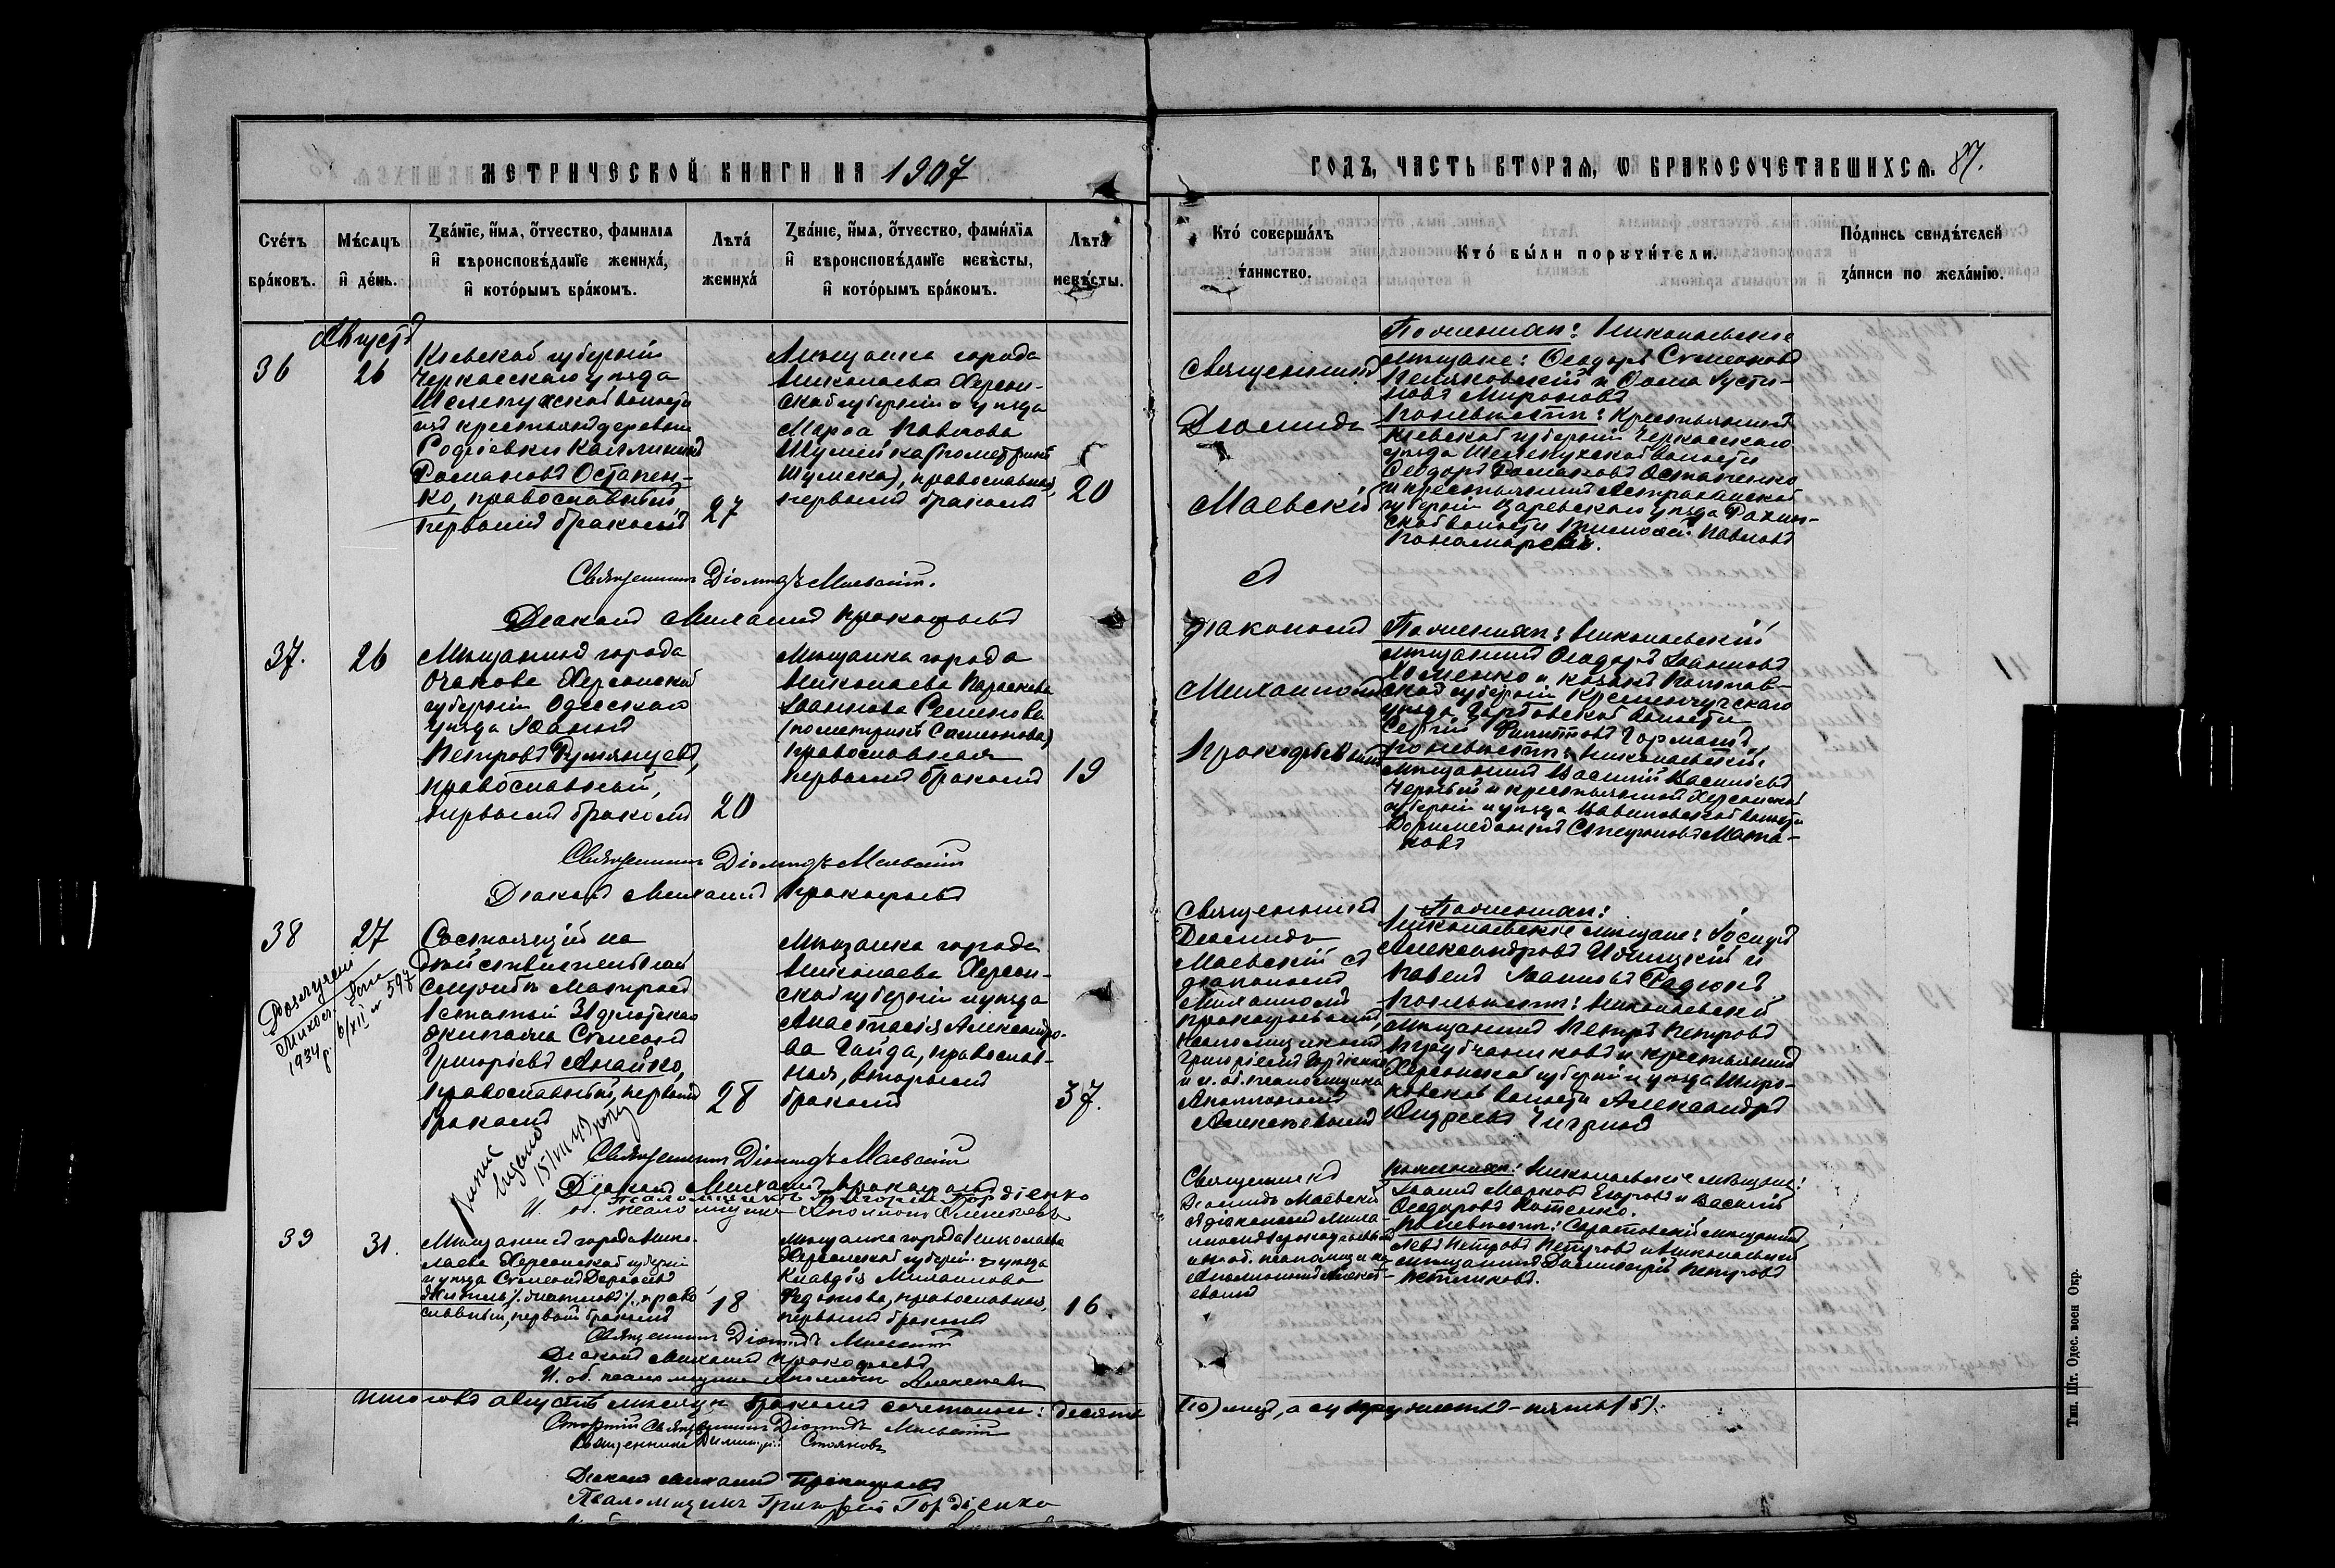 МЕТРИЧЕСКОЙ КНИГИ НА 1907
ГОДЪ, ЧАСТЬ ВТОРАЯ, Ѡ БРАКОСОЧЕТАВШИХСЯ. 87.
Счетъ браковъ.
Мѣсяцъ и день.
Званіе, имя, отчество, фамилія и вѣроисповѣданіе жениха, и которымъ бракомъ.
Лѣта жениха
Званіе, имя, отчество, фамилія и вѣроисповѣданіе невѣсты, и которымъ бракомъ.
Лѣта невѣсты.
Кто совершалъ таинство.
Кто были поручители.
Подпись свидѣтелей записи по желанію.
Августъ
36
26
Кіевской губерніи
Черкасскаго уѣзда
Шелепухской волости
изъ крестьянъ деревни
Родіевки Каллиникъ
Романовъ Остапен-
ко, православный,
первымъ бракомъ
27
Мѣщанка города
Николаева Херсон-
ской губерніи и уѣзда
Марѳа Павлова
православная,
первымъ бракомъ
20
Священникъ
Діомидъ
Маевскій
съ
діакономъ
Михаиломъ
Прокофьевымъ
По женихѣ: Николаевскіе
мѣщане: Ѳеодоръ Симеоновъ
и Ѳома Густи-
новъ Мироновъ
По невѣстѣ: крестьянинъ
Кіевской губерніи Черкасскаго
уѣзда Шелепухской волости
Ѳеодоръ Романовъ Остапенко
и крестьянинъ Астраханской
губерніи Царевскаго уѣзда Рахин-
ской волости Тимоѳей Павловъ
Пономаревъ.
Священникъ Діомидъ Маевскій.
Діаконъ Михаилъ Прокофьевъ
37.
26
Мѣщанинъ города
Очакова Херсонской
губерніи Одесскаго
уѣзда Іоаннъ
Петровъ Румянцевъ,
православный,
первымъ бракомъ
20
Мѣщанка города
Николаева Параскева
Іоаннова Семенова
(по метрикѣ Самойлова)
православная
первымъ бракомъ
19
По женихѣ: Николаевскій
мѣщанинъ Ѳеодоръ Іоанновъ
Хоменко и козакъ Полтав-
ской губерніи Кременчугскаго
уѣзда волости
Сергій Филипповъ
По невѣстѣ: Николаевскій
мѣщанинъ Василій Василіевъ
Черный и крестьянинъ Херсонской
губерніи и уѣзда волости
Стефановъ
Священникъ Діомидъ Маевскій
Діаконъ Михаилъ Прокофьевъ
38
27
Состоящій на
дѣйствительной
службѣ Матросъ
1 статьи 31 флотскаго
экипажа Симеонъ
Григоріевъ Анайко,
православный, первымъ
бракомъ
28
Мѣщанка города
Николаева Херсон-
ской губерніи и уѣзда
Анастасія Александро-
ва Гайда, православ-
ная, вторымъ
бракомъ
37.
Священникъ
Діомидъ
Маевскій съ
діакономъ
Михаиломъ
Прокофьевымъ,
псаломщикомъ
Григоріемъ Гордіенко
и и. об. псаломщика
Алексѣевымъ
По женихѣ:
Николаевскіе мѣщане: Іосифъ
Александровъ и
Павелъ Іоанновъ
По невѣстѣ: Николаевскій
мѣщанинъ Петръ Петровъ
и крестьянинъ
Херсонской губерніи и уѣзда Широ-
ковской волости Александръ
Андреевъ Чигринъ
1934 г. 6/XII № 597
Священникъ Діомидъ Маевскій
Діаконъ Михаилъ Прокофьевъ
Псаломщикъ Григорій Гордіенко
И. об. псаломщика Алексѣевъ
39
31.
Мѣщанинъ города Нико-
лаева Херсонской губерніи
и уѣзда Симеонъ
право-
славный, первымъ бракомъ
18
Мѣщанка города Николаева
Херсонской губерніи и уѣзда
Клавдія Михаилова
православная,
первымъ бракомъ
16
Священникъ
Діомидъ Маевскій
съ діакономъ Миха-
иломъ Прокофьевымъ
и и. об. псаломщика
По женихѣ: Николаевскіе мѣщане:
Іоаннъ Марковъ Егоровъ и Василій
Ѳеодоровъ Котенко.
По невѣстѣ: Саратовскій мѣщанинъ
Левъ Петровъ Петровъ и Николаевскій
мѣщанинъ Петровъ
Священникъ Діомидъ Маевскій
Діаконъ Михаилъ Прокофьевъ
И. об. псаломщика Алексѣевъ
Итого въ августѣ мѣсяцѣ бракомъ сочетались: десять (10) лицъ, а супружествъ - пять (5).
Старшій Священникъ Діомидъ Маевскій
Священникъ Стояновъ
Діаконъ Михаилъ Прокофьевъ
Псаломщикъ Григорій Гордіенко
Тип. Шт. Одес. воен Окр.